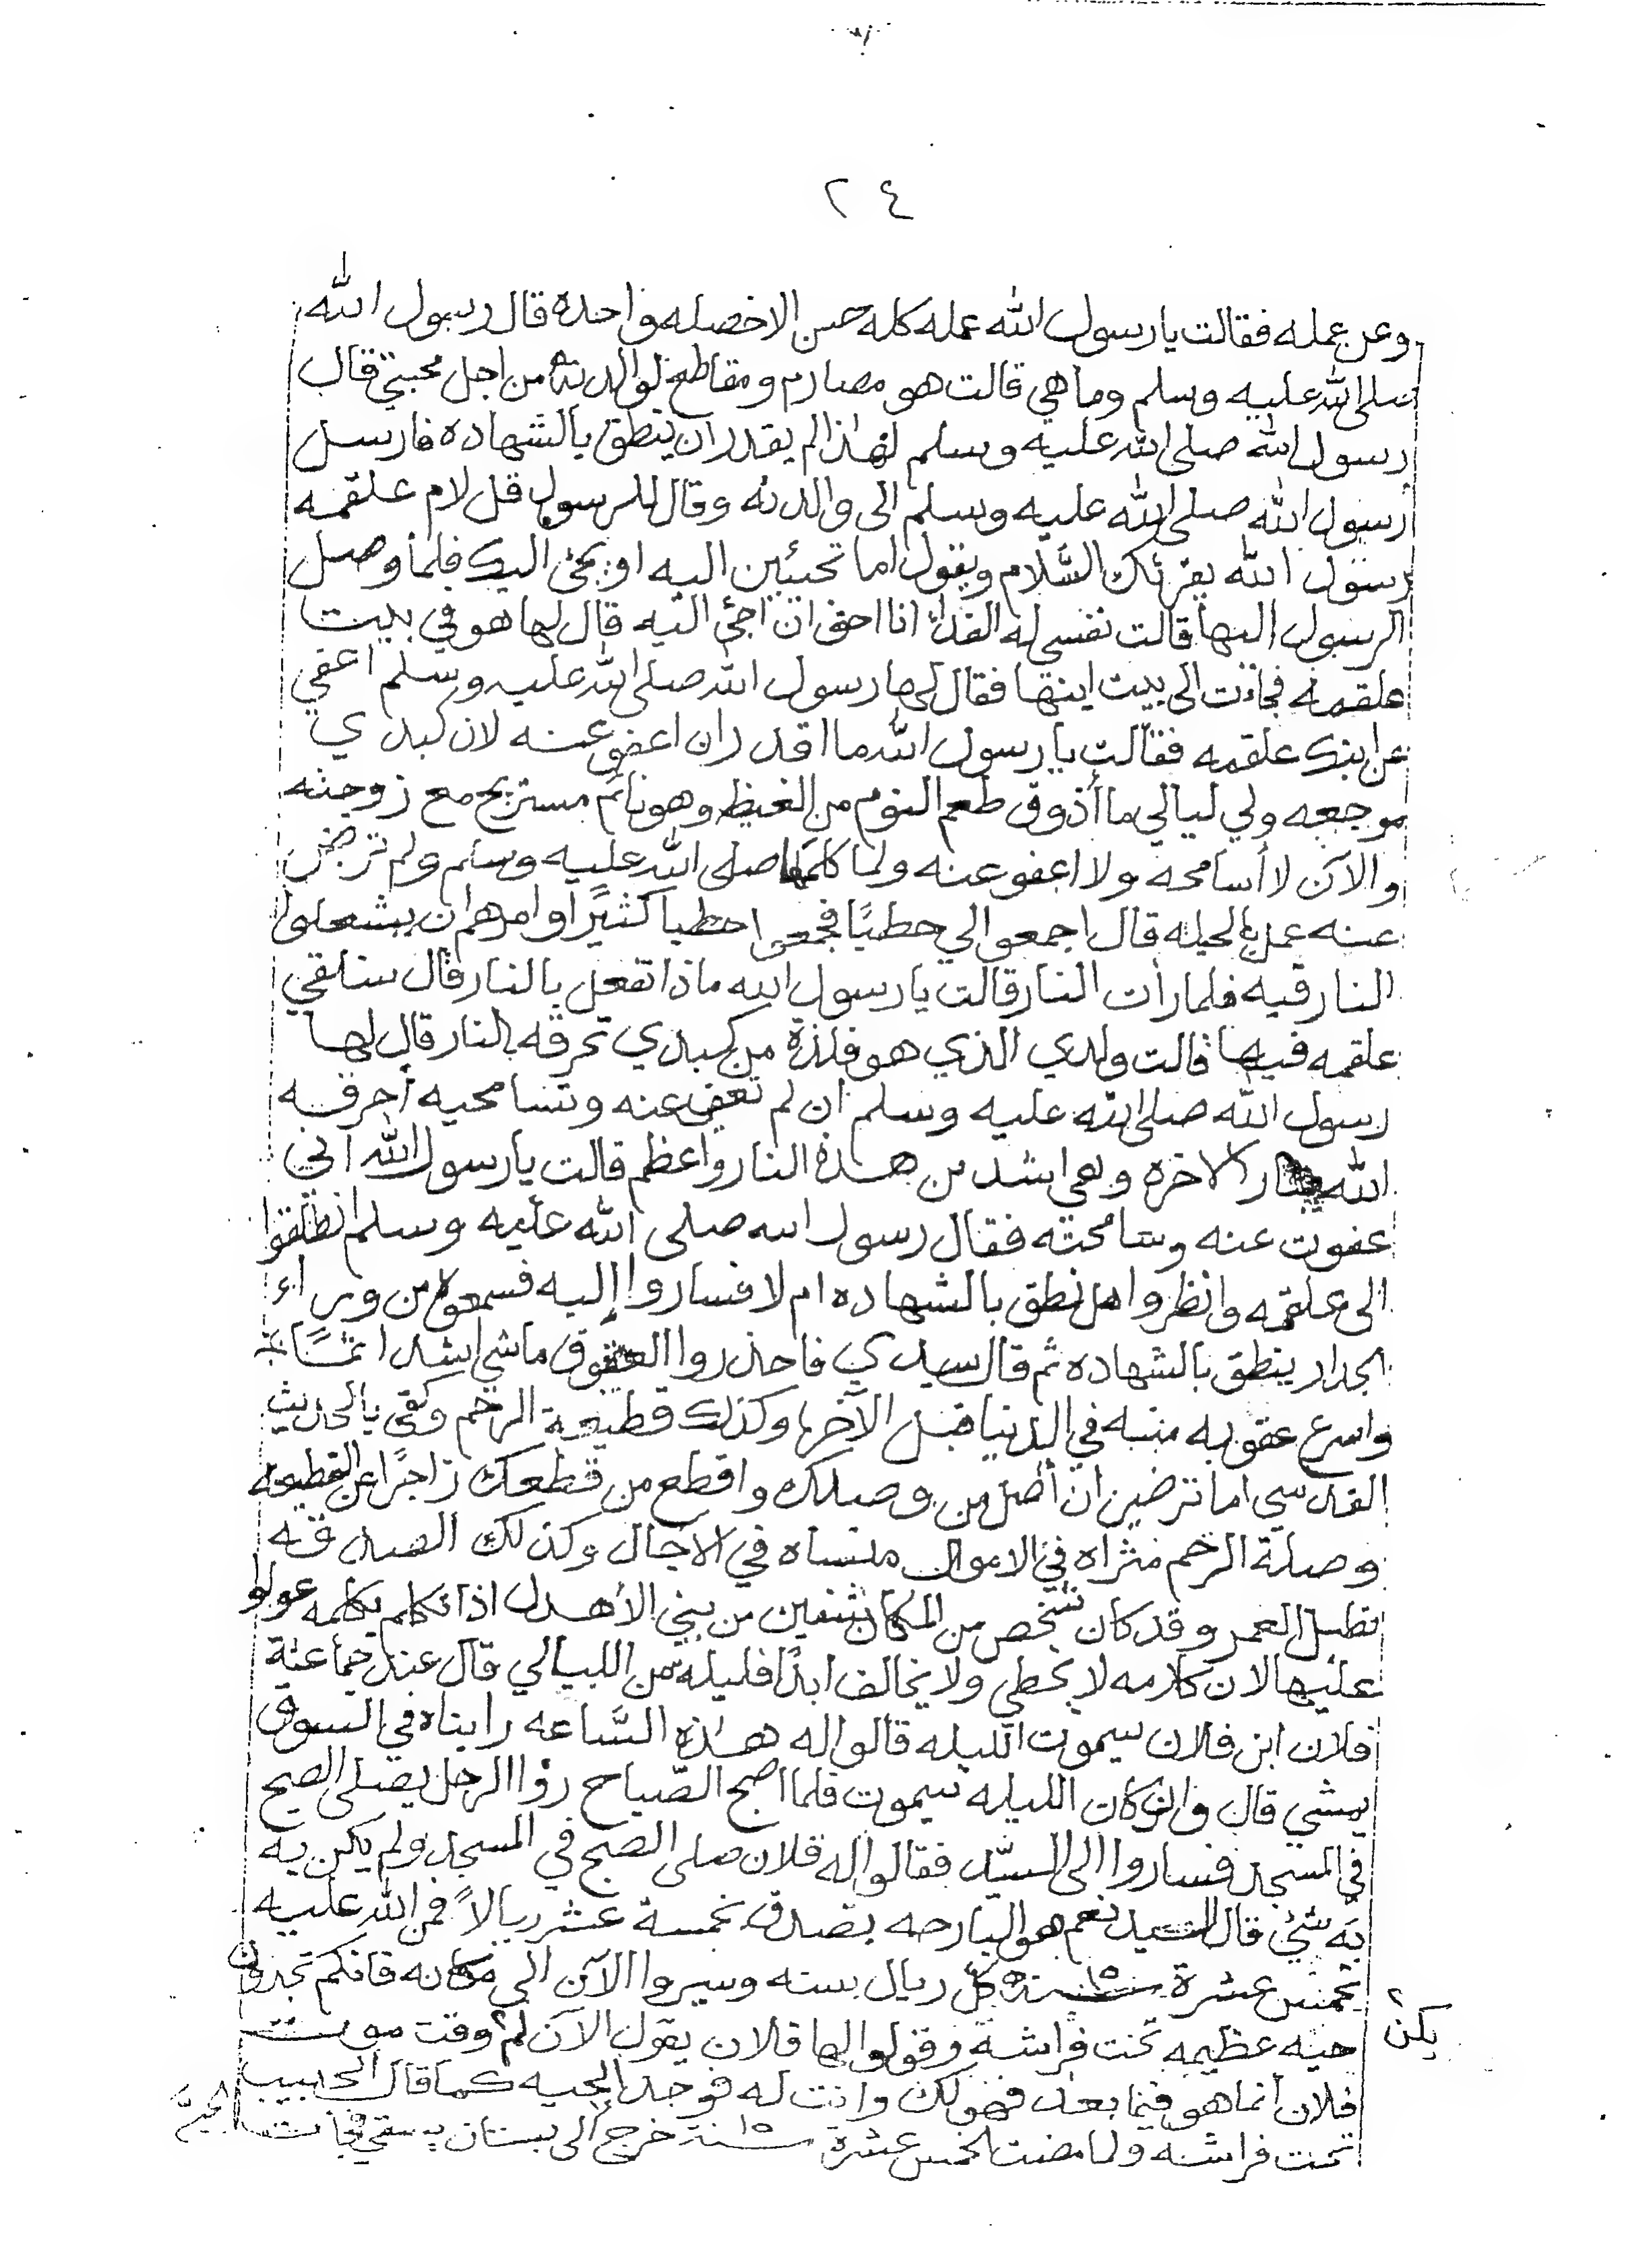 ٢٤
وعن عمله فقالت يا رسول الله عمله كله حسن الا خصله واحده قال رسول الله
صلى الله عليه وسلم وما هي قالت هو مصارم ومقاطع لوالدته من اجل محبتي قال
رسول الله صلى الله عليه وسلم لهذا لم يقدر ان ينطق بالشهاده فارسل
رسول الله صلى الله عليه وسلم الى والدته وقال للرسول قل لام علقمه
رسول الله يقرئك السَّلام ويقول اما تجيئين اليه او يجئ اليك فلما وصل
الرسول اليها قالت نفسي له الفداء انا احق ان اجئ اليه قال لها هو في بيت
علقمه فجاءت الى بيت ابنها فقال لها رسول الله صلى الله عليه وسلم اعفي
عن ابنك علقمه فقالت يا رسول الله ما اقدر ان اعفو عنه لان كبدي
موجعه ولي ليالي ما أذوق طعم النوم من الغيظ وهو نائم مستريح مع زوجته
والآن لا أسامحه ولا اعفو عنه ولما كلمها صلى الله عليه وسلم ولم ترض
عنه عمل بالحيله قال اجمعوا لي حطبًا فجمعوا حطبا كثيرًا وامرهم ان يشعلوا
النار فيه فلما رأت النار قالت يا رسول الله ماذا تفعل بالنار قال سنلقي
علقمه فيها قالت ولدي الذي هو فلذة من كبدي تحرقه بالنار قال لها
رسول الله صلى الله عليه وسلم ان لم تعفي عنه وتسامحيه أحرقه
الله بنار الاخره وهي اشد من هذه النار واعظم قالت يا رسول الله اني
عفوت عنه وسامحته فقال رسول الله صلى الله عليه وسلم انطلقوا
الى علقمه وانظروا هل نطق بالشهاده ام لا فساروا إليه فسمعوه من وراء
الجدار ينطق بالشهاده ثم قال سيدي فاحذروا العقوق ما شي اشد اثمًا
واسرع عقوبه منه في الدنيا قبل الآخره وكذلك قطيعة الرحم وكفى بالحديث
القدسي اما ترضين ان أصل من وصلك واقطع من قطعك زاجرًا عن القطيعه
وصلة الرحم مثراه في الاموال منساه في الاجال وكذلك الصدقه
تطيل العمر وقد كان شخص من المكاشفين من بني الأهدل اذا تكلم بكلمه عولوا
عليها لان كلامه لا يخطي ولا يخالف ابدًا فليله من الليالي قال عند جماعة
فلان ابن فلان سيموت الليله قالوا له هذه السَّاعه رايناه في السوق
يمشي قال وان كان الليله سيموت فلما اصبح الصّباح رؤا الرجل يصلى الصبح
في المسجد فساروا الى السيّد فقالوا له فلان صلى الصبح في المسجد ولم يكن به
به شئ قال السيد نعم هو البارحه تصدق بخمسة عشر ريالاً فمن الله عليه
بخمس عشرة سنة كل ريال بسنه وسيروا الآن الى مكانه فانكم تجدون
حيه عظيمه تحت فراشه وقولوا لها فلان يقول الآن لم وقت موت
يكن
فلان انما هو فيما بعد فهو لك وانت له فوجدوا الحيه كما قال الحبيب
تحت فراشه ولما مضت الخمس عشرة سنة خرج الى بستان يسقي فجائت الحيّه